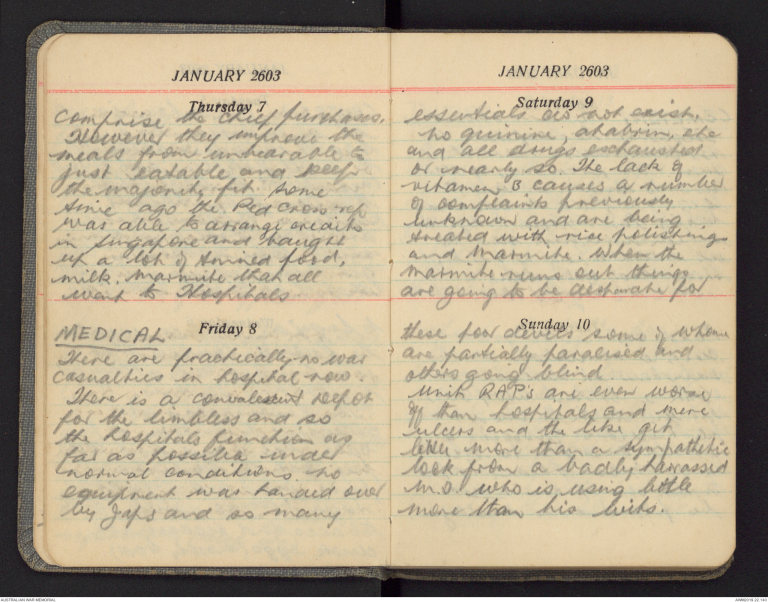 JANUARY 2603
Thursday 7
comprise the chief purchases.
However they improve the
meals from unbearable to
just eatable and keep
the majority fit. Some
time ago the Red Cross rep
was able to arrange credits
in Singapore and bought
up a lot of tinned food,
milk, marmite that all
went to Hospitals.
Friday 8
MEDICAL.
There are practically no war
casualties in hospital now.
There is a convalescent depot
for the limbless and so
the hospitals function as
far as possible under
normal conditions. No
equipment was handed over
by Japs and so many
JANUARY 2603
Saturday 9
essentials do not exist.
No quinine, atabrin, etc
and all drugs exhausted
or nearly so. The lack of
vitamen B causes a number
of complaints previously
unknown and are being
treated with rice polishings
and Marmite. When the
marmite runs out things
are going to be desperate for
Sunday 10
these poor devils some of whom
are partially paralised and
others going blind.
Unit RAP's are even worse
off than hospitals and mere
ulcers and the like get
little more than a sympathetic
look from a badly harrassed
M.O. who is using little
more than his wits.
AUSTRALIAN WAR MEMORIAL